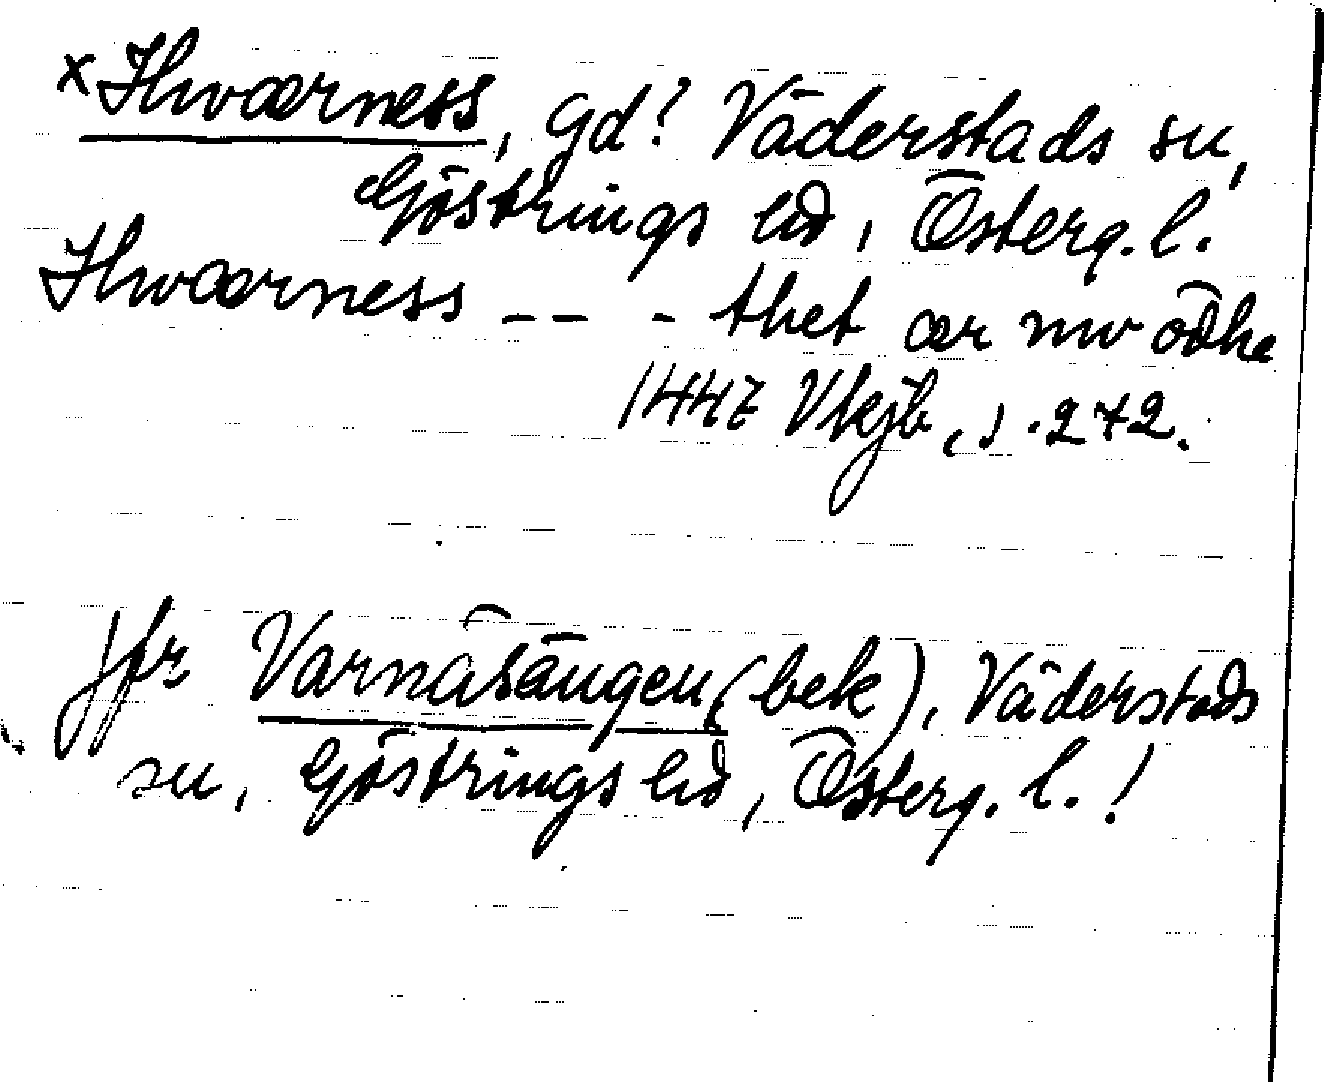 x Hwærness, gd? Väderstads sn,
Göstrings hd, Österg. l.
Hwærness -- - thet ær nw ödhe
1447 Vkjb, s. 272.
Jfr Varnäsängen (bek), Väderstads
sn, Göstrings hd, Österg. l. !